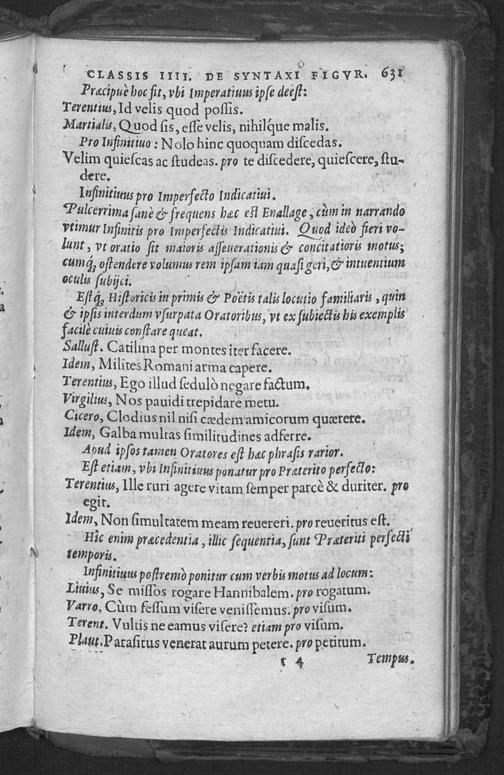 CLASSIS IIII. DE SYNTAXI FIGVR. 631
Præcipuè hoc fit, vbi Imperatiuus ipse deest:
Terentius, Id velis quod possis.
Martialis, Quod sis, esse velis, nihilq́ue malis.
Pro Infinitiuo: Nolo hinc quoquam discedas.
Velim quiescas ac studeas. pro te discedere, quiescere, stu-
dere.
Infinitiuus pro Imperfecto Indicatiui.
Pulcerrima sanè & frequens hac est Enallage, cùm in narrando
vtimur Infinitis pro Imperfectis Indicatiui. Quod ideò fieri vo-
lunt, vt oratio sit maioris asseuerationis & concitatioris motus;
cumq́; ostendere volumus rem ipsam iam quasi geri, & intuentium
oculis subijci.
Estq́; Historicis in primis & Poëtis talis locutio familiaris, quin
& ipsis interdum vsurpata Oratoribus, vt ex subiectis his exemplis
facilè cuiuis constare queat.
Sallust. Catilina per montes iter facere.
Idem, Milites Romani arma capere.
Terentius, Ego illud sedulò negare factum.
Virgilius, Nos pauidi trepidare metu.
Cicero, Clodius nil nisi cædem amicorum quærere.
Idem, Galba multas similitudines adferre.
Apud ipsos tamen Oratores est hac phrasis rarior.
Est etiam, vbi Infinitiuus ponatur pro Præterito perfecto:
Terentius, Ille ruri agere vitam semper parcè & duriter. pro
egit.
Idem, Non simultatem meam reuereri. pro reueritus est.
Hic enim præcedentia, illic sequentia, sunt Præteriti perfecti
temporis.
Infinitiuus postremò ponitur cum verbis motus ad locum:
Liuius, Se missos rogare Hannibalem. pro rogatum.
Varro, Cùm fessum visere venissemus. pro visum.
Terent. Vultis ne eamus visere? etiam pro visum.
Plaut. Parasitus venerat aurum petere. pro petitum.
4 Tempus.